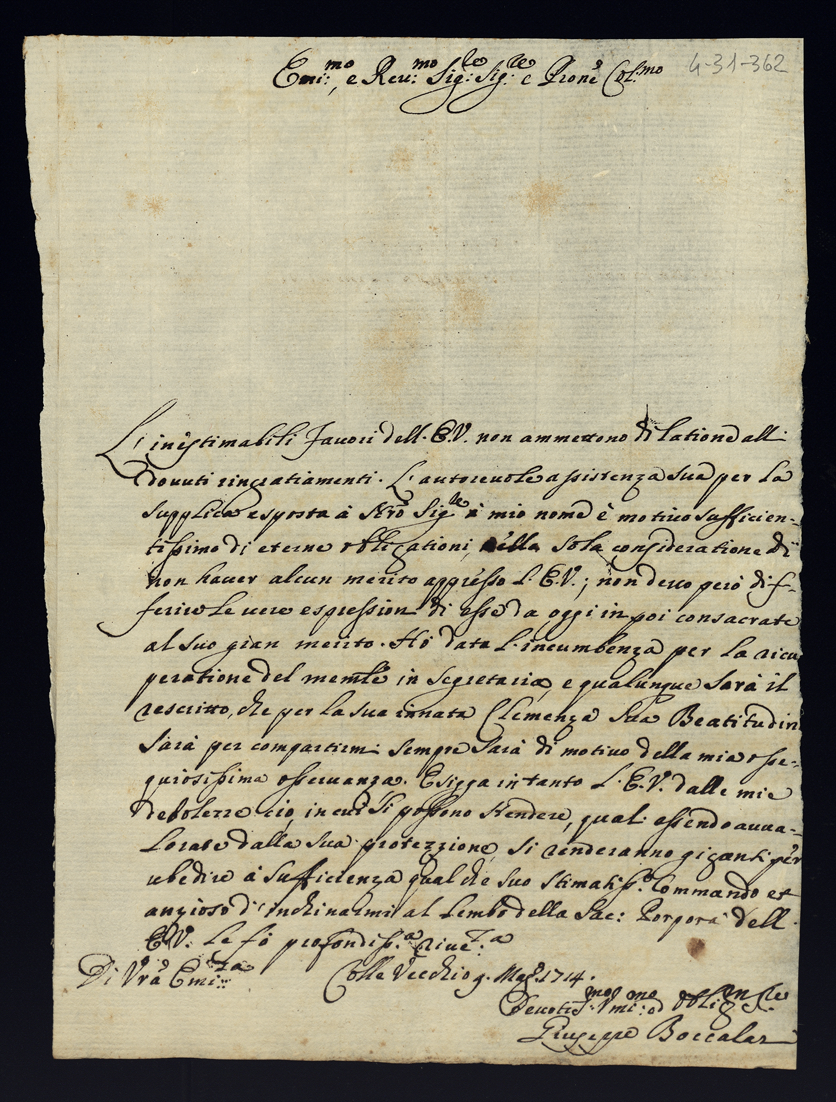 4-31-362
Emi:mo, e Reu:mo Sig:re Sig:re e Prone Col:mo
L'inestimabili fauori dell' E.V. non ammettono dilatione alli
douuti ringratiamenti. L'autoreuole assistenza sua per la
supplica esposta à Nrõ Sigre à mio nome è motiuo sufficien-
tissimo di eterne obligationi, nella sola consideratione di
non hauer alcun merito appresso l'E.V.; non deuo però dif-
ferire le uere espressioni di esse da oggi in poi consacrate
al suo gran merito. Hò data l'incumbenza per la ricu
peratione del memle in segretaria, e qualunque sarà il
rescritto, che per la sua innata Clemenza Sua Beatitudin
sarà per compartirmi sempre sarà di motiuo della mia osse-
quiosissima osseruanza. Esigga in tanto l'E.V. dalle mie
debolezze ciò, in cui si possono stendere, quali essendo auua-
lorate dalla sua protezzione, si renderanno giganti per
ubedire à sufficienza qualche suo stimatiss.o Commando et
anzioso d'inchinarmi al lembo della Sac: Porpora dell'
E.V. le fò profondiss.a riuer.a
Di Vrã Emi:za Colle Vecchio 9. Mag.o 1714.
Deuotis:mo Vmi:mo ed Obligmo Sre
Giuseppe Boccalar